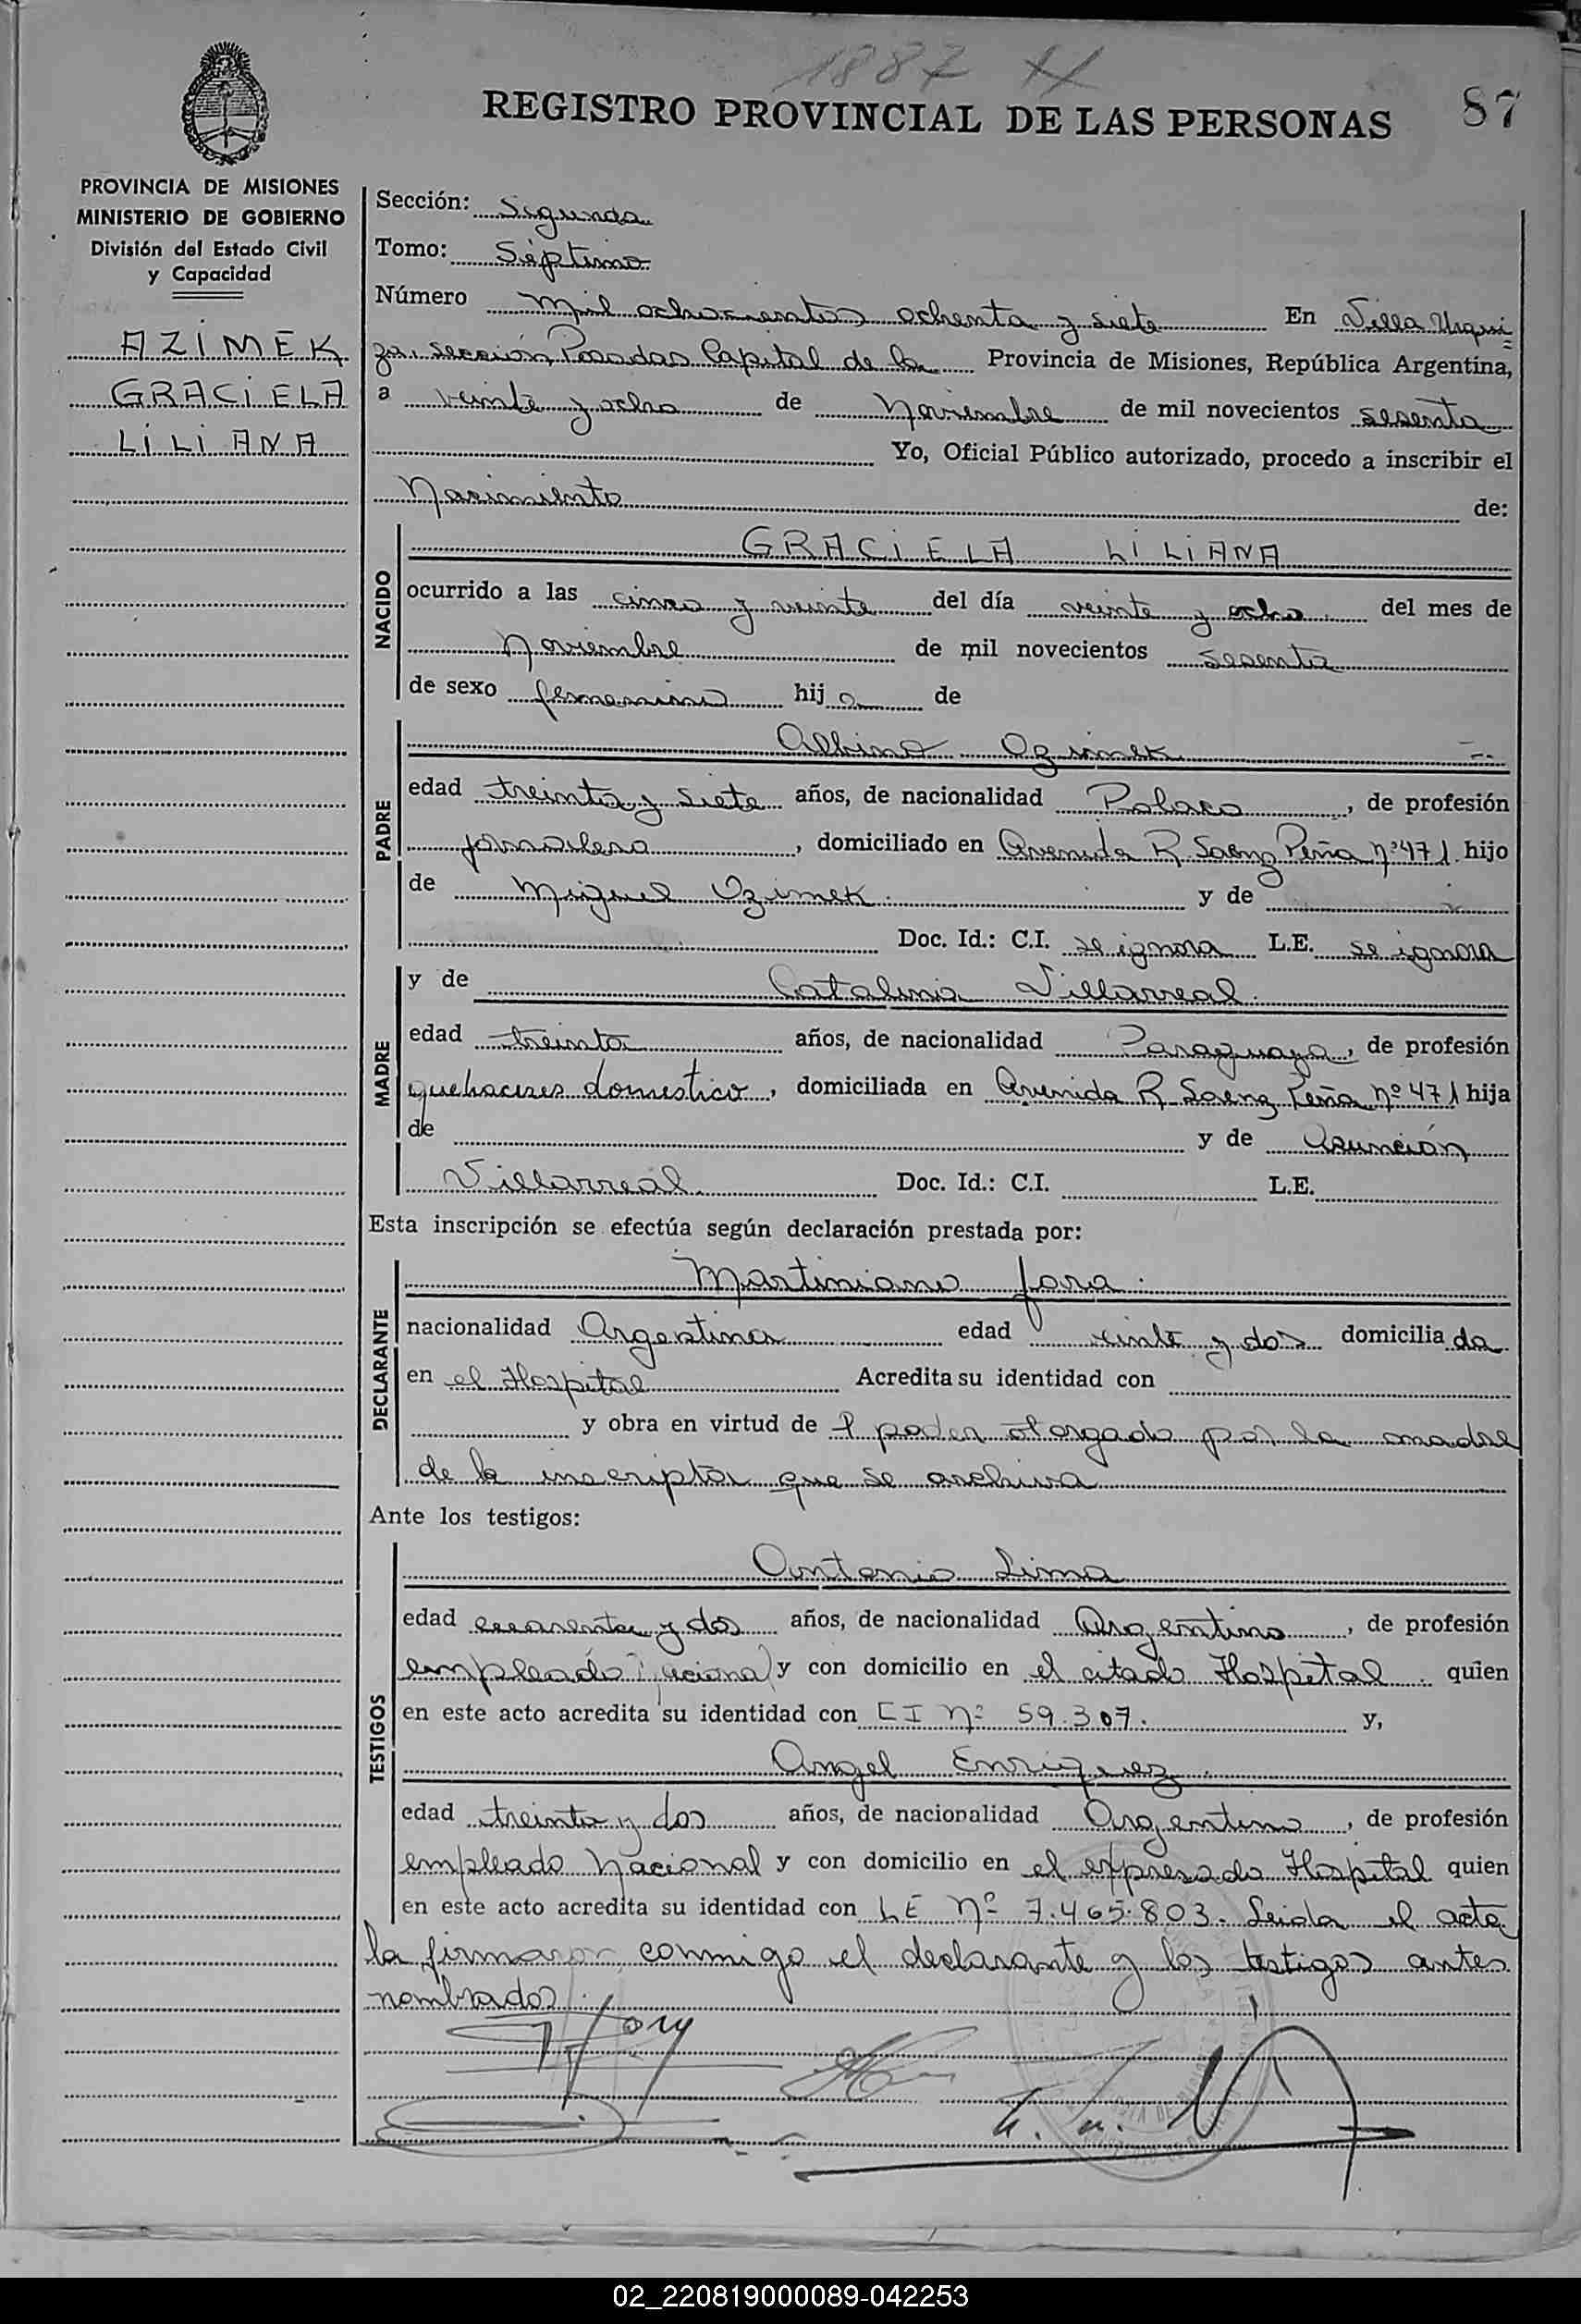 1887
REGISTRO PROVINCIAL DE LAS PERSONAS 87
PROVINCIA DE MISIONES
MINISTERIO DE GOBIERNO
División del Estado Civil
y Capacidad
AZIMEK
GRACIELA
LILIANA
Sección: Segunda
Tomo: Séptimo
Número Mil ochocientos ochenta y siete En Villa Urqui
za, sección Posadas Capital de la Provincia de Misiones, República Argentina,
a veinte y ocho de Noviembre de mil novecientos sesenta
Yo, Oficial Público autorizado, procedo a inscribir el
Nacimiento de:
NACIDO
GRACIELA LILIANA
ocurrido a las cinco y veinte del día veinte y ocho del mes de
Noviembre de mil novecientos sesenta
de sexo femenino hija de
PADRE
Albino Ozimek
edad treinta y siete años, de nacionalidad Polaco, de profesión
jornalero, domiciliado en Avenida R. Saenz Peña nº 471 hijo
de Miguel Ozimek y de
Doc. Id.: C.I. se ignora L.E. se ignora
MADRE
y de Catalina Villarreal
edad treinta años, de nacionalidad Paraguaya, de profesión
quehaceres domestico, domiciliada en Avenida R Saenz Peña nº 471 hija
de y de Asunción
Villarreal Doc. Id.: C.I. L.E.
Esta inscripción se efectúa según declaración prestada por:
DECLARANTE
Martiniano Jara
nacionalidad Argentina edad veinte y dos domiciliada
en el Hospital Acredita su identidad con
y obra en virtud de l poder otorgado por la madre
de la inscripta que se archiva
Ante los testigos:
TESTIGOS
Antonio Lima
edad cuarenta y dos años, de nacionalidad Argentino, de profesión
empleado nacional y con domicilio en el citado Hospital quien
en este acto acredita su identidad con CI Nº 59.307. y,
Angel Enriquez
edad treinta y dos años, de nacionalidad Argentino, de profesión
empleado Nacional y con domicilio en el expresado Hospital quien
en este acto acredita su identidad con LE Nº 7.465.803. Leida el acta
la firmaron conmigo el declarante y los testigos antes
nombrados.
02_220819000089-042253